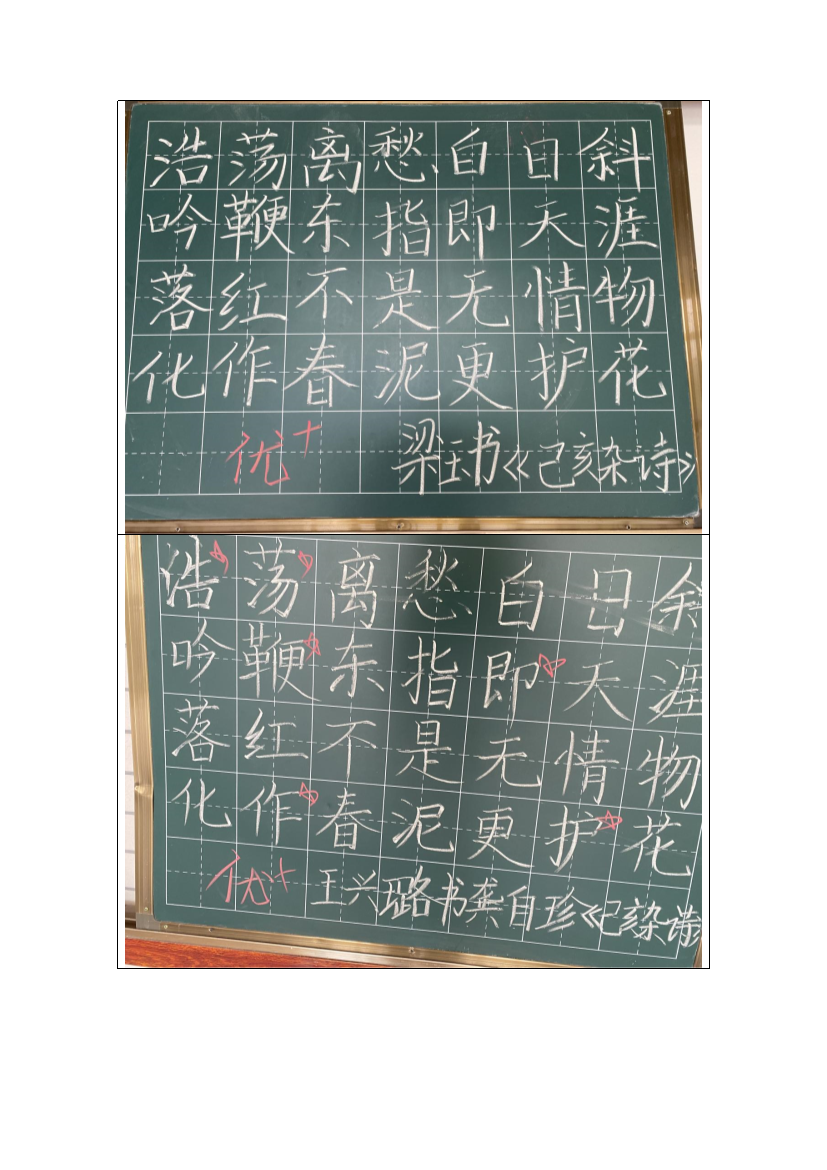 浩荡离愁白日斜
吟鞭东指即天涯
落红不是无情物
化作春泥更护花
优+ 梁玉书《己亥杂诗》
浩荡离愁白日斜
吟鞭东指即天涯
落红不是无情物
化作春泥更护花
优+ 王兴璐书龚自珍《己亥杂诗